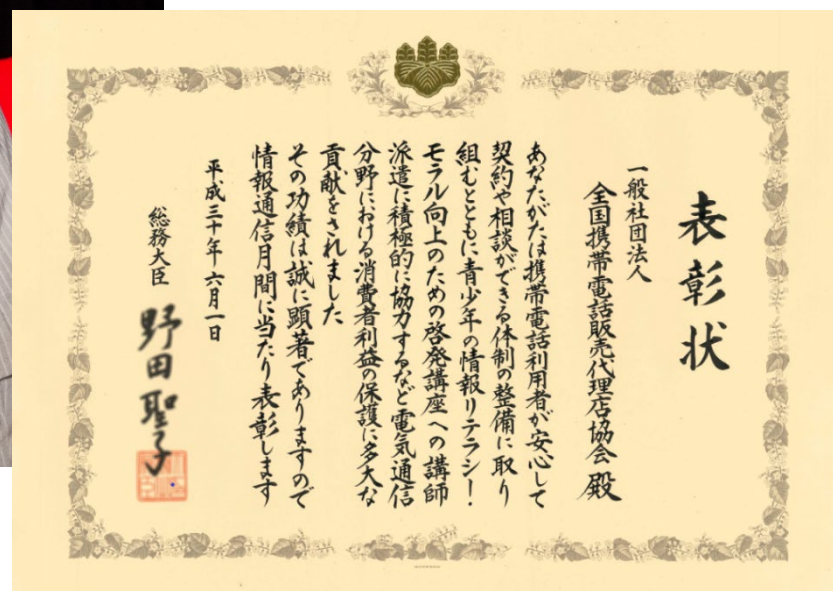 表彰状
一般社団法人
全国携帯電話販売代理店協会 殿
あなたがたは携帯電話利用者が安心して
契約や相談ができる体制の整備に取り
組むとともに青少年の情報リテラシー
モラル向上のための啓発講座への講師
派遣に積極的に協力するなど電気通信
分野における消費者利益の保護に多大な
貢献をされました
その功績は誠に顕著でありますので
情報通信月間に当たり表彰します
平成三十年六月一日
総務大臣
野田聖子